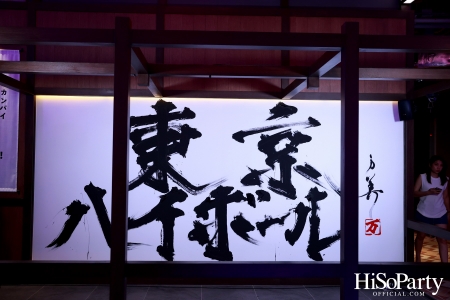 東京
ハイボール
万美
万
カンパイ
HiSoParty
OFFICIAL.COM